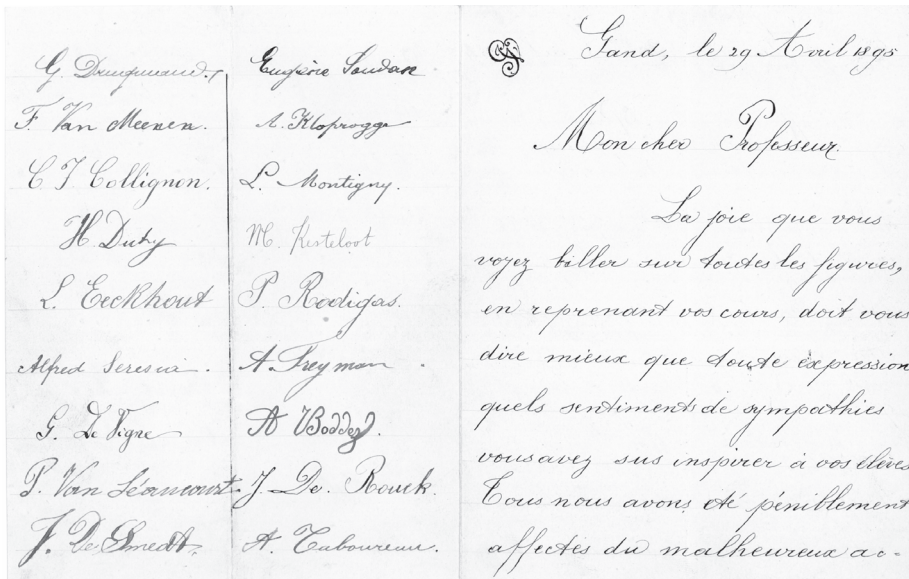 G.
F. Van Meenen.
C J Collignon.
H. Dutry
L. Eeckhout
Alfred Seresia.
G. De Vigne
P. Van
J. De Smedt.
Eugène Soudan
A. Kloprogge
L. Montigny.
M. Kesteloot
P. Rodigas.
A. Freyman
A Boddez.
J. De. Rouck.
A. Taboureau.
Gand, le 29 Avril 1895
Mon cher Professeur.
La joie que vous
voyez biller sur toutes les figures,
en reprenant vos cours, doit vous
dire mieux que toute expression
quels sentiments de sympathies
vous avez sus inspirer à vos élèves
Tous nous avons été péniblement
affectés du malheureux ac-